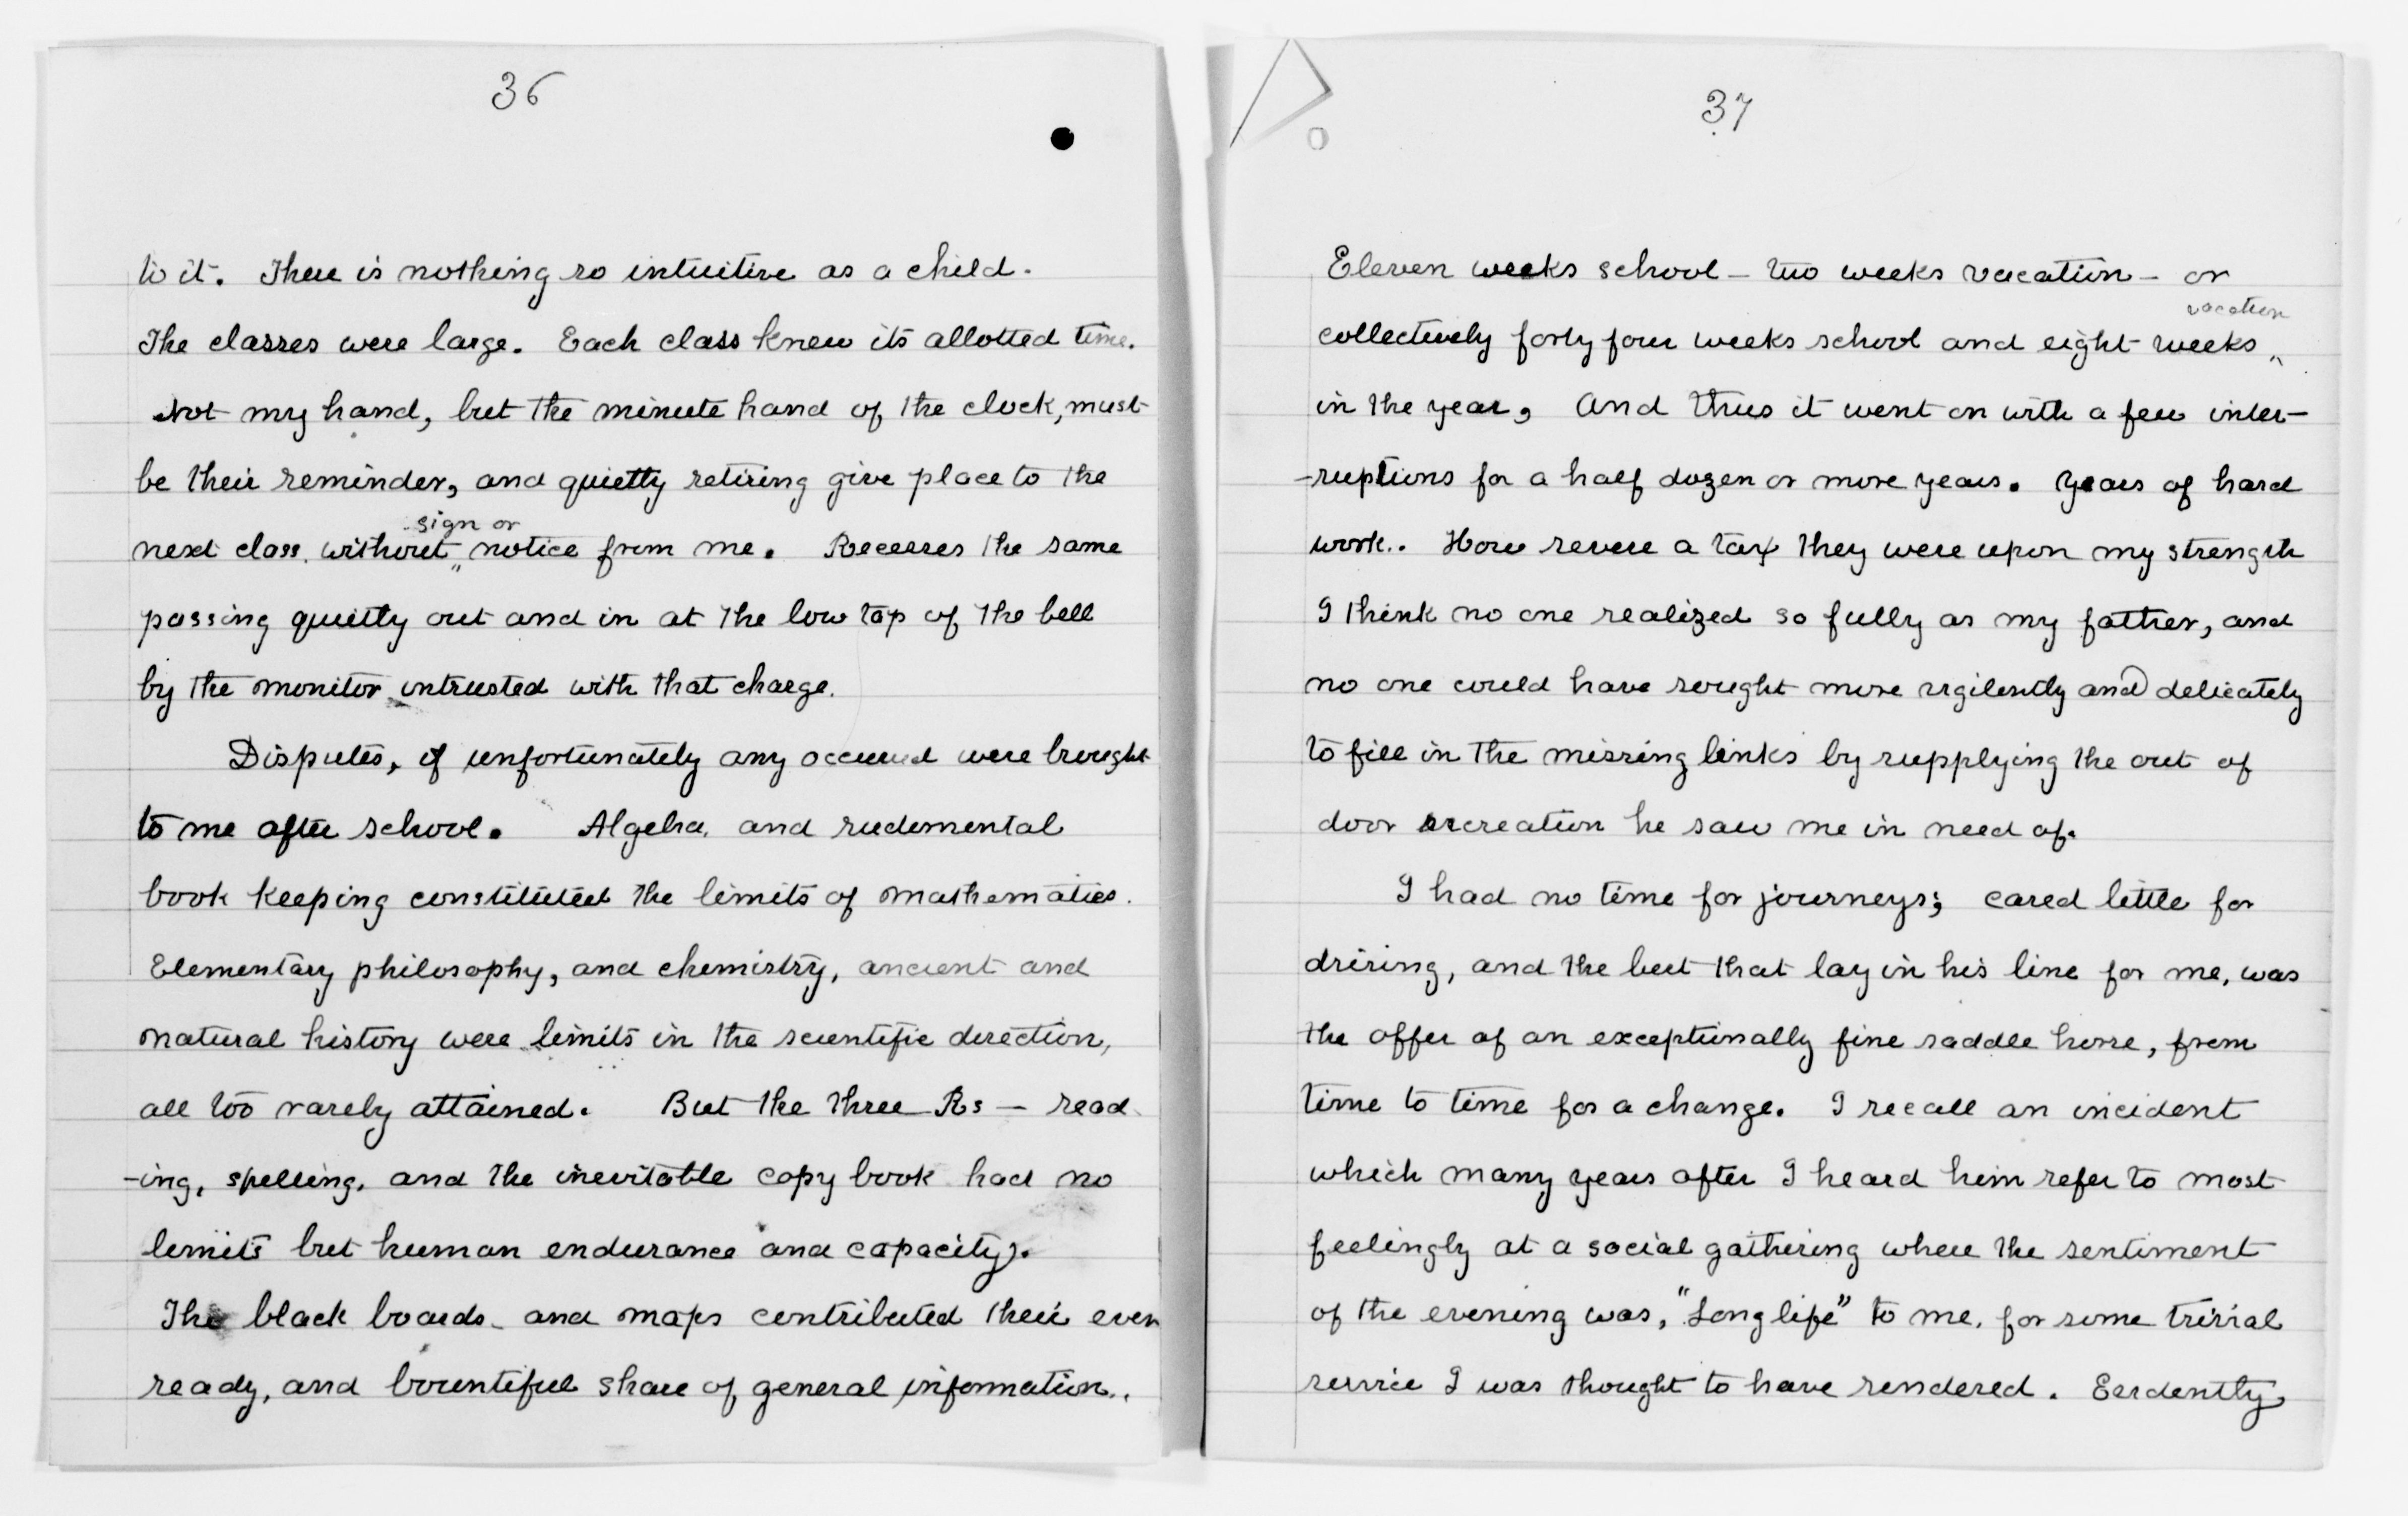 36
to it. There is nothing so intuitive as a child.
The classes were large. Each class knew its allotted time.
Not my hand, but the minute hand of the clock, must
be their reminder, and quietly retiring give place to the
sign or
next class without notice from me. Recesses the same
passing quietly out and in at the low tap of the bell
by the monitor intrusted with that charge.
Disputes, if unfortunately any occurred were brought
to me after school. Algebra, and rudemental
book keeping constituted the limits of mathematics.
Elementary philosophy, and chemistry, ancient and
natural history were limits in the scientific direction,
all too rarely attained. But the three Rs — read
-ing, spelling, and the inevitable copy book had no
limits but human endurance and capacity.
The black boards and maps contributed their ever
ready, and bountiful share of general information.
37
Eleven weeks school – two weeks vacation – or
vacation
collectively forty four weeks school and eight weeks
in the year, And thus it went on with a few inter–
–ruptions for a half dozen or more years. Years of hard
work. How severe a tax they were upon my strength
I think no one realized so fully as my father, and
no one could have sought more vigilently and delicately
to fill in the missing links by supplying the out of
door recreation he saw me in need of.
I had no time for journeys; cared little for
driving, and the best that lay in his line for me, was
the offer of an exceptionally fine saddle horse, from
time to time for a change. I recall an incident
which many years after I heard him refer to most
feelingly at a social gathering where the sentiment
of the evening was, "Long life" to me, for some trivial
service I was thought to have rendered. Evidently